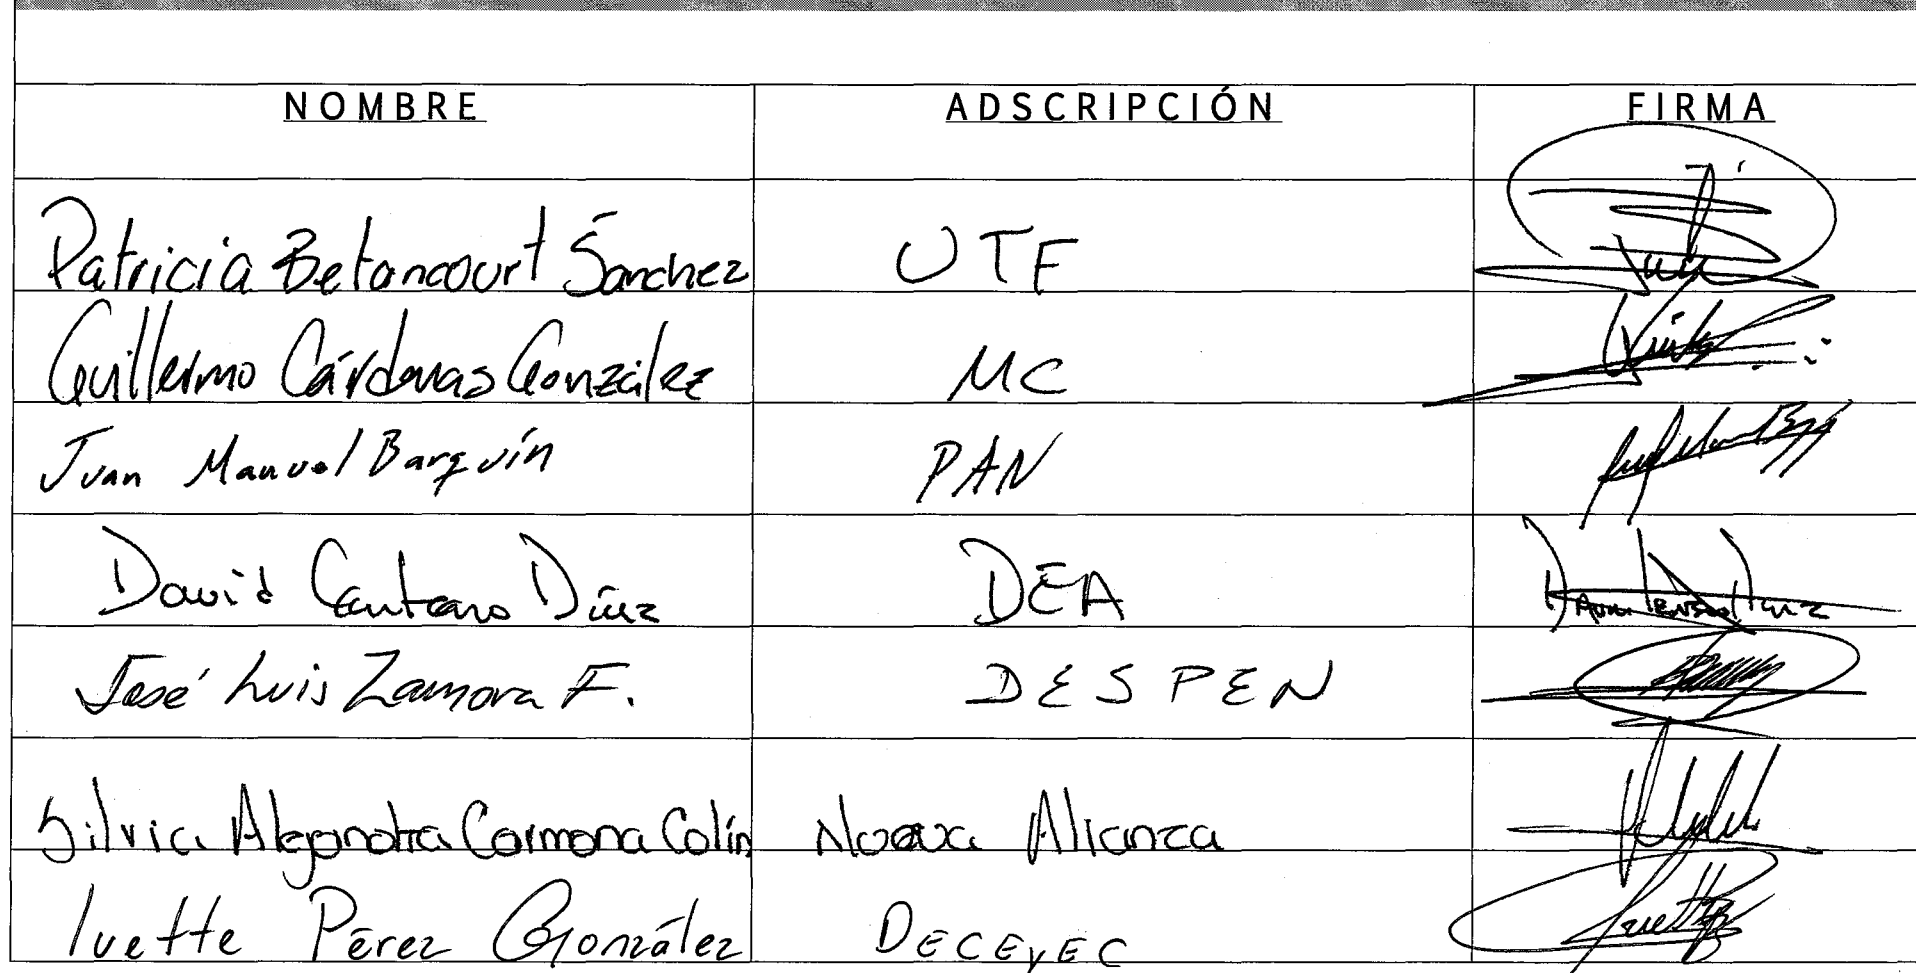 NOMBRE ADSCRIPCIÓN FIRMA
Patricia Betancourt Sánchez UTF
Guillermo Cárdenas González MC
Juan Manuel Barquín PAN
David Díaz DEA
José Luis Zamora F. DESPEN
Silvia Alejandra Carmona Colín Nueva Alianza
Ivette Pérez González DECEyEC